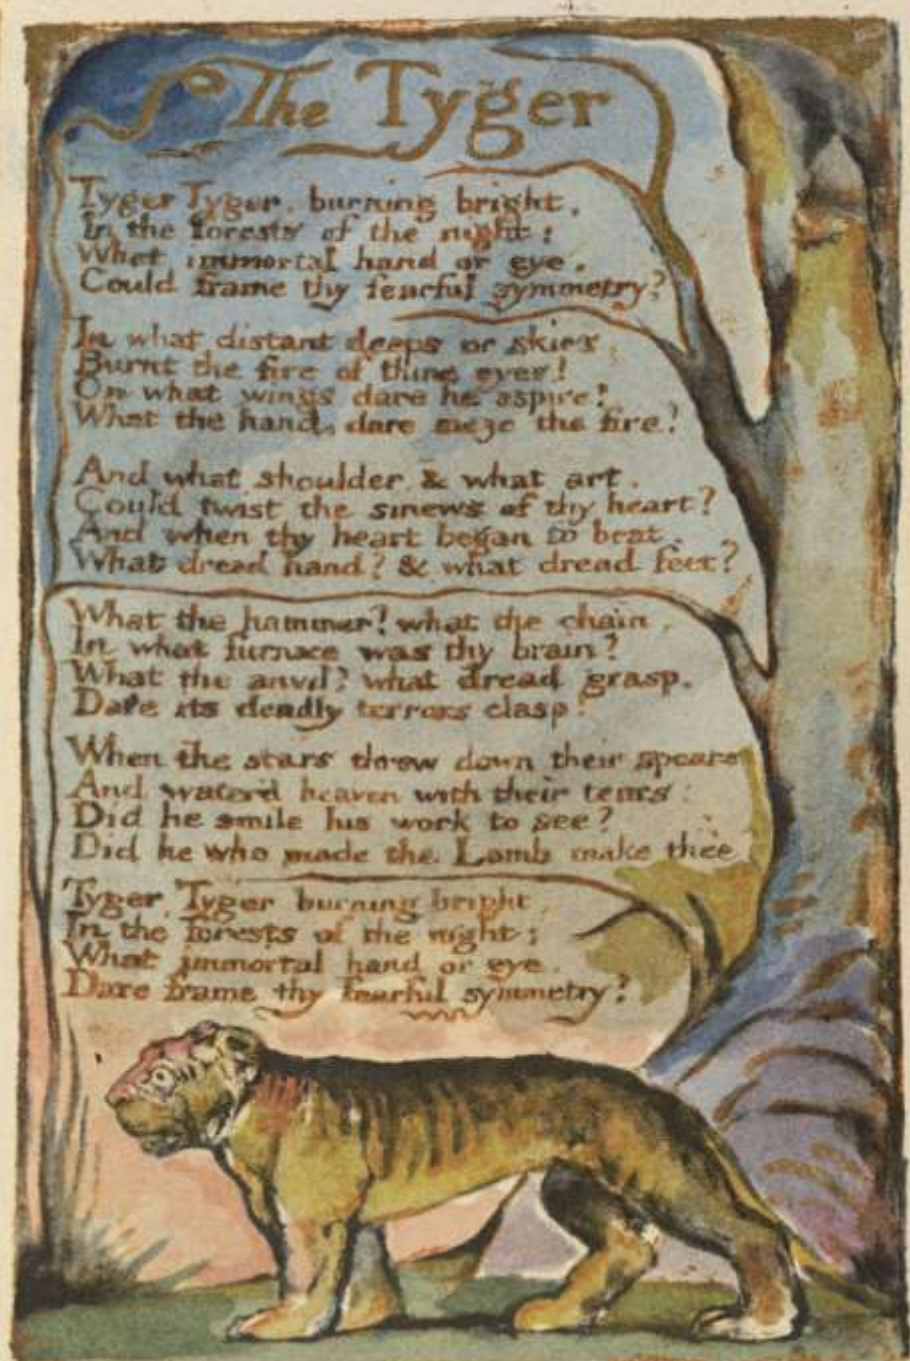 The Tyger
Tyger Tyger, burning bright,
In the forests of the night;
What immortal hand or eye,
Could frame thy fearful symmetry?
In what distant deeps or skies,
Burnt the fire of thine eyes!
On what wings dare he aspire!
What the hand, dare sieze the fire?
And what shoulder, & what art,
Could twist the sinews of thy heart?
And when thy heart began to beat,
What dread hand? & what dread feet?
What the hammer? what the chain,
In what furnace was thy brain?
What the anvil? what dread grasp,
Dare its deadly terrors clasp!
When the stars threw down their spears
And water'd heaven with their tears:
Did he smile his work to see?
Did he who made the Lamb make thee
Tyger, Tyger burning bright,
In the forests of the night;
What immortal hand or eye,
Dare frame thy fearful symmetry?